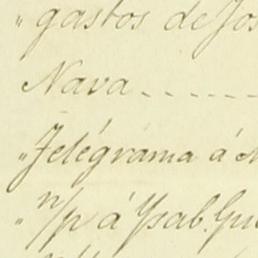 " gastos de Jos
Nava
" Telégrama á
" n/p á Ysab. Gu